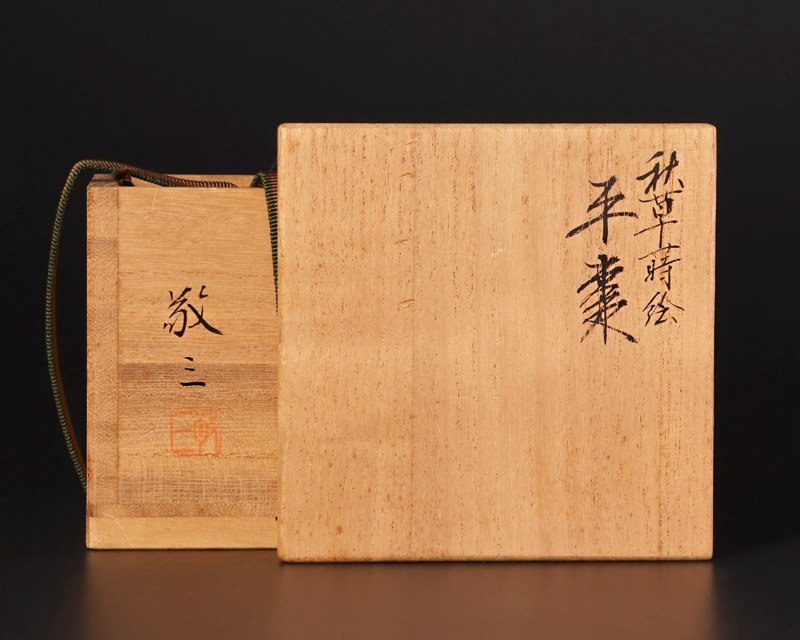 秋草蒔絵
平棗
敬三